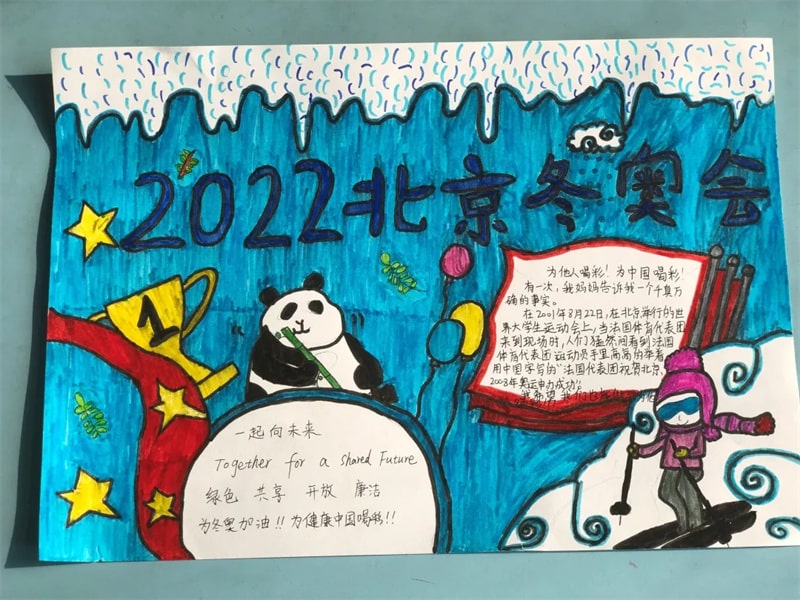 2022北京冬奥会
1
为他人喝彩！为中国喝彩！
有一次，我妈妈告诉我一个千真万
确的事实。
在2001年8月22日，在北京举行的世
界大学生运动会上，当法国体育代表团
来到现场时，人们猛然间看到法国
体育代表团运动员手里高高的举着
用中国字写的“法国代表团祝贺北京，
2008年奥运申办成功”。
我希望我们也
一起向未来
Together for a shared Future
绿色 共享 开放 廉洁
为冬奥加油!! 为健康中国喝彩!!